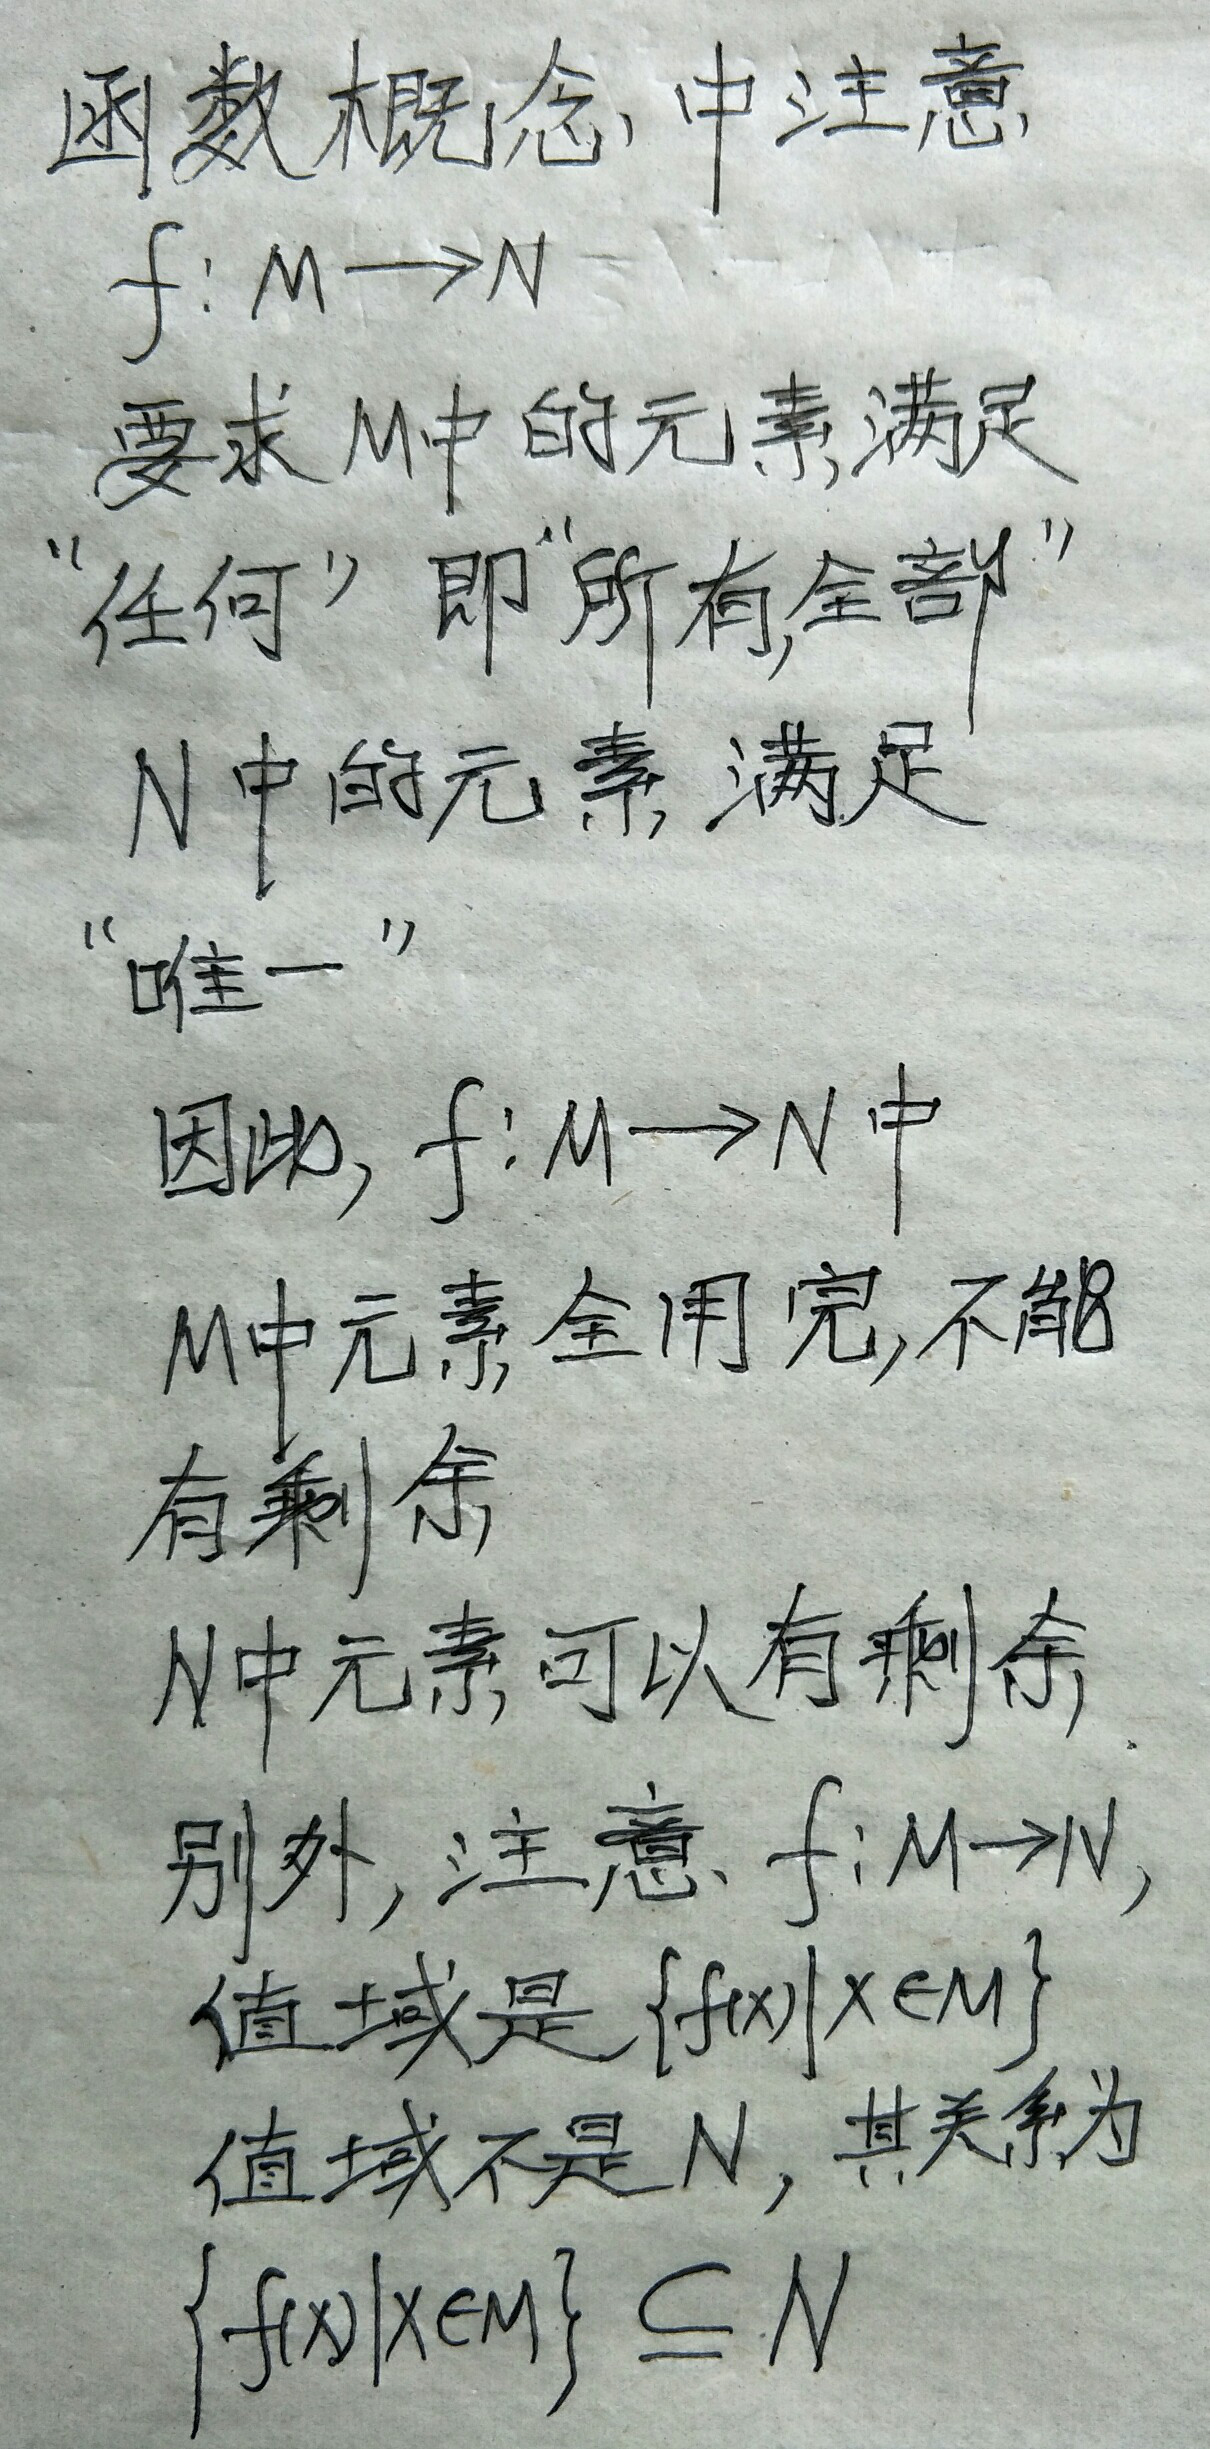 函数概念中注意
f: M→N
要求M中的元素满足
“任何”即“所有,全部”
N中的元素满足
“唯一”
因此, f: M→N中
M中元素全用完,不能
有剩余
N中元素可以有剩余.
别外,注意 f: M→N,
值域是{f(x)|x∈M}
值域不是N,其关系为
{f(x)|x∈M}⊆N